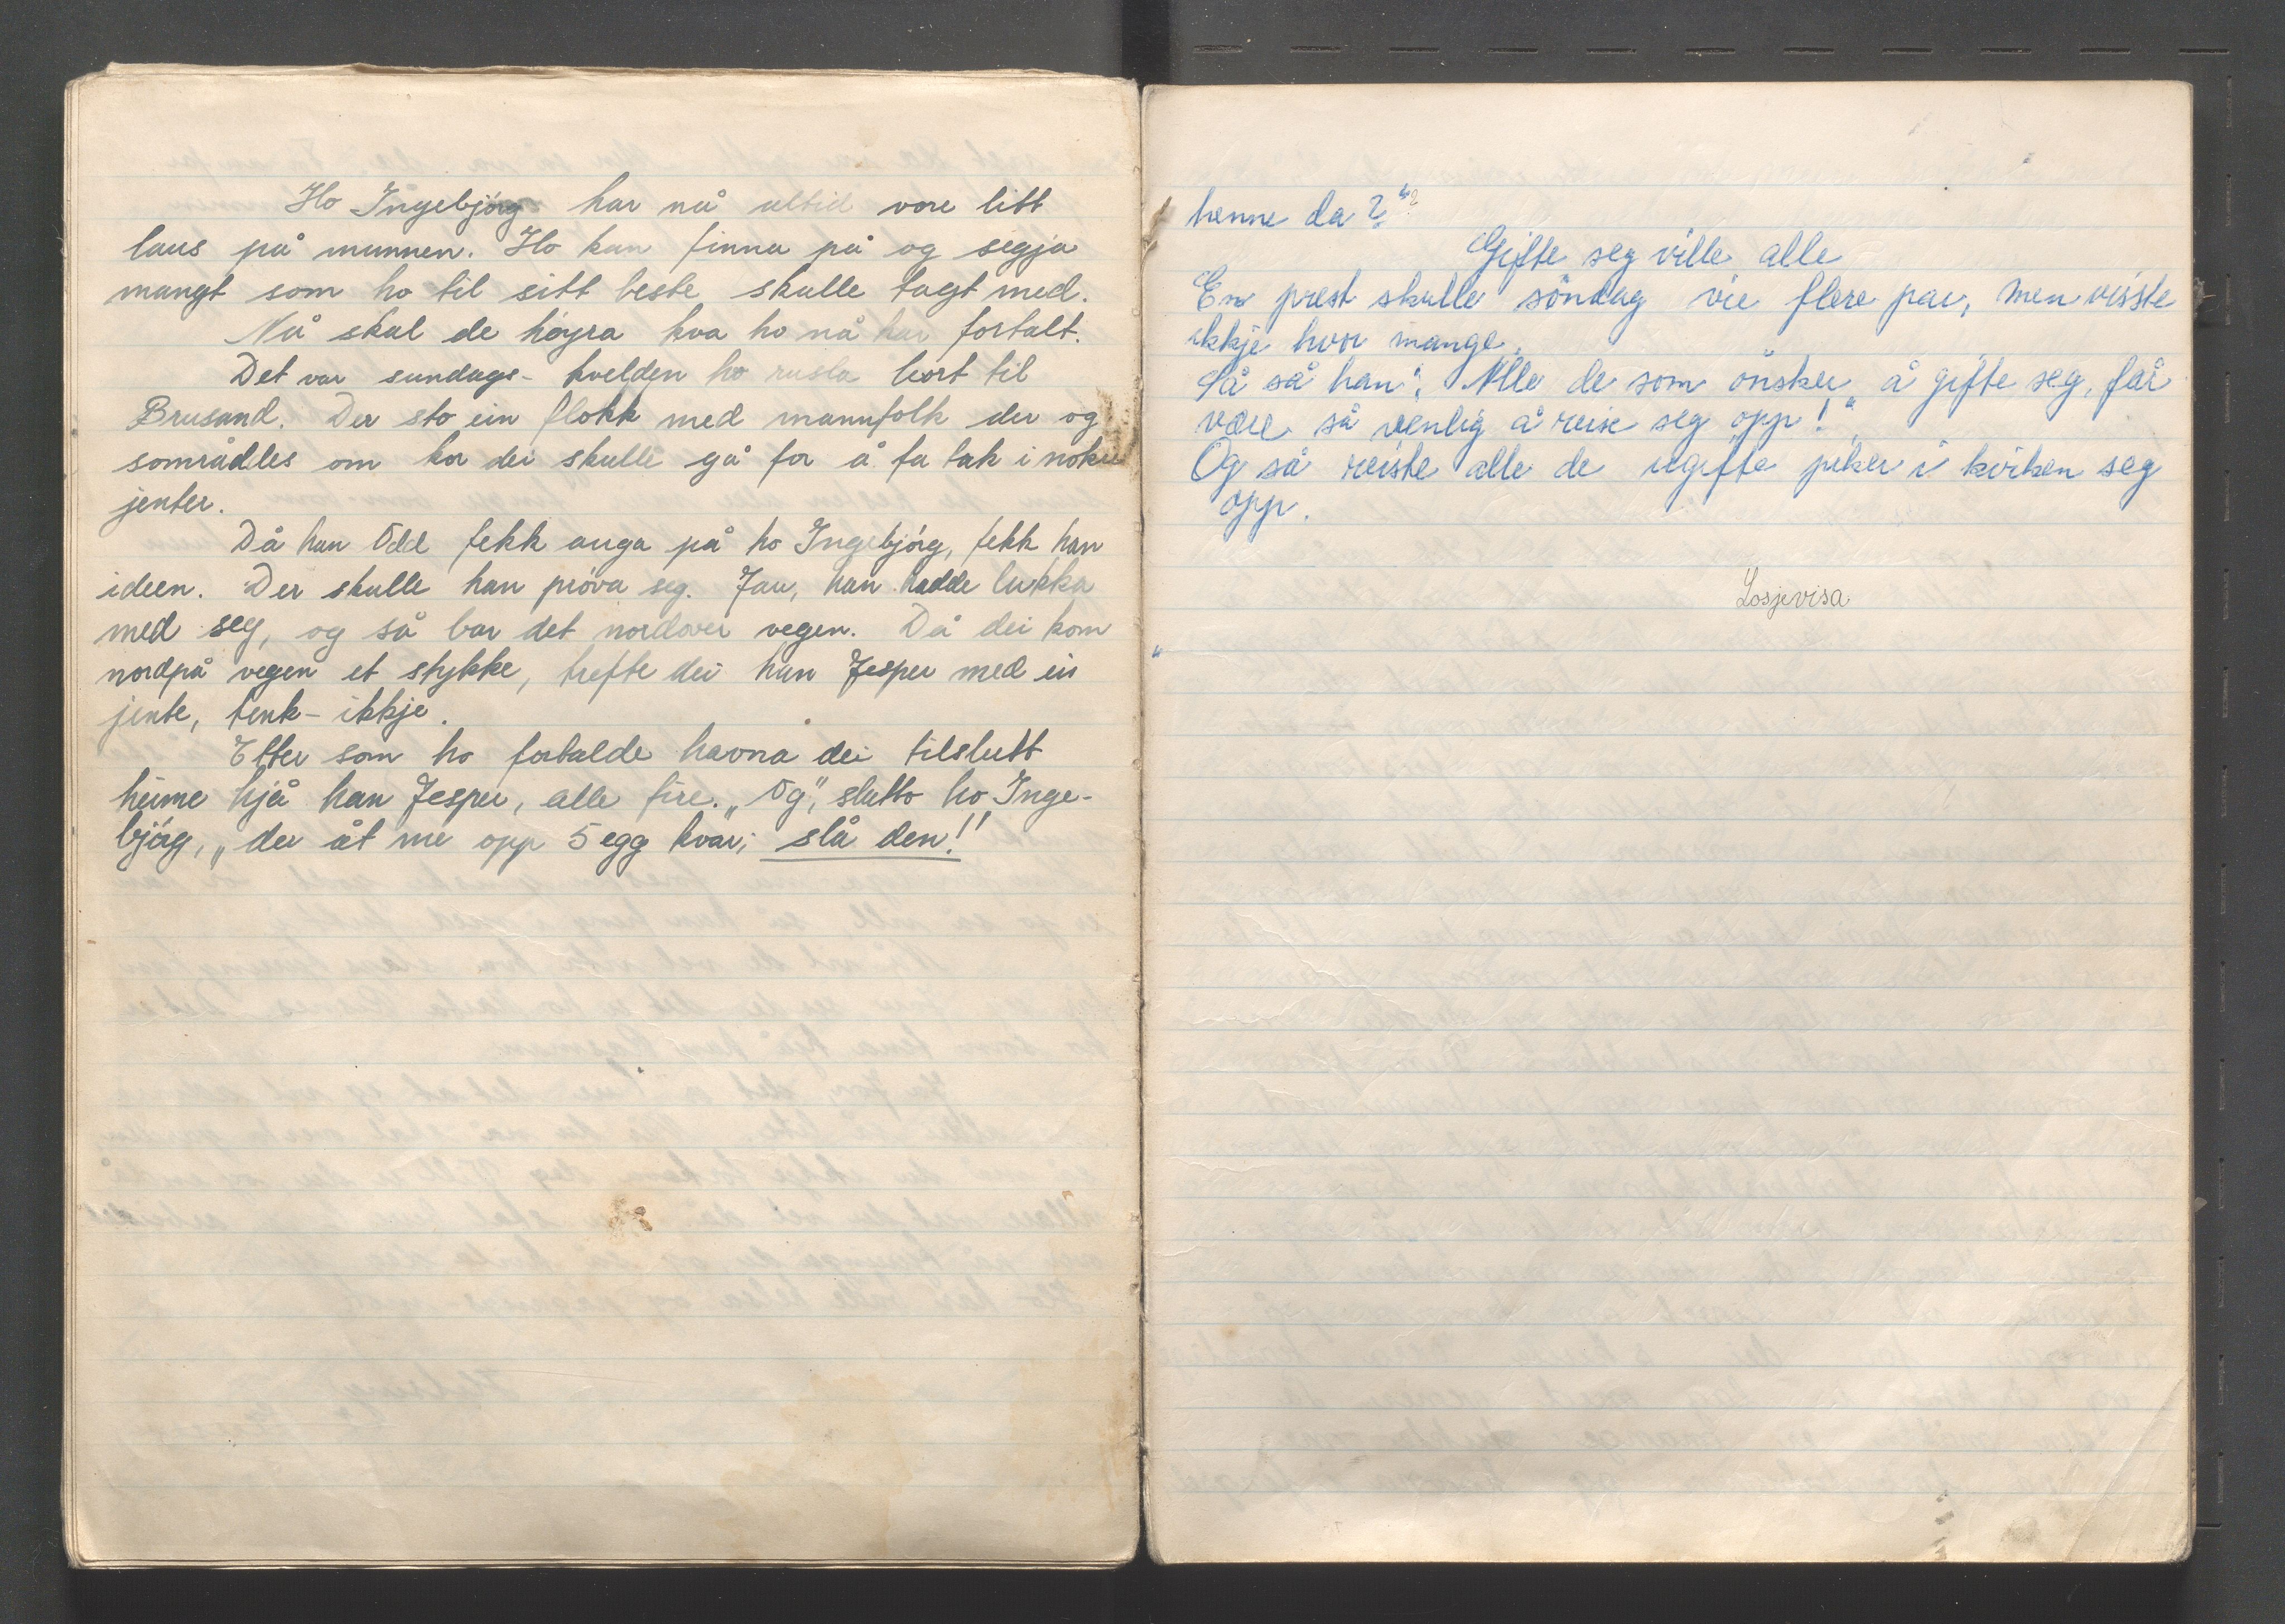 Ho Ingebjórg har nå altid vore litt
laus på munnen. Ho kan finna på og segja
mangt som ho til sitt beste skulle tagt med.
Nå skal de høyra kva ho nå har fortalt.
Det var sundags- kvelden ho rusla bort til
Brusand. Der sto ein flokk med mannfolk der og
sområdles om kor dei skulle gå for å fa tak i noke
jenter.
Då han Odd fekk auga på ho Ingebjórg, fekk han
ideen. Der skulle han pröva seg. Jau, han hadde lukka
med seg, og så bar det nordover vegen. Då dei kom
nordpå vegen et stykke, trefte dei han Jesper med ei
jente, tenk- ikkje.
Etter som ho fortalde havna dei tilslutt
heime hjå han Jesper, alle fire. „Og", slutto ho Inge-
bjórg, „der åt me opp 5 egg kvar; slå den!"
henne da?"
Gifte seg ville alle
En prest skulle söndag vie flere par, men visste
ikkje hvor mange.
Så sa han: „Alle de som önsker å gifte seg, får
være så venlig å reise seg opp!"
Og så reiste alle de ugifte piker i kirken seg
opp.
Losjevisa
"